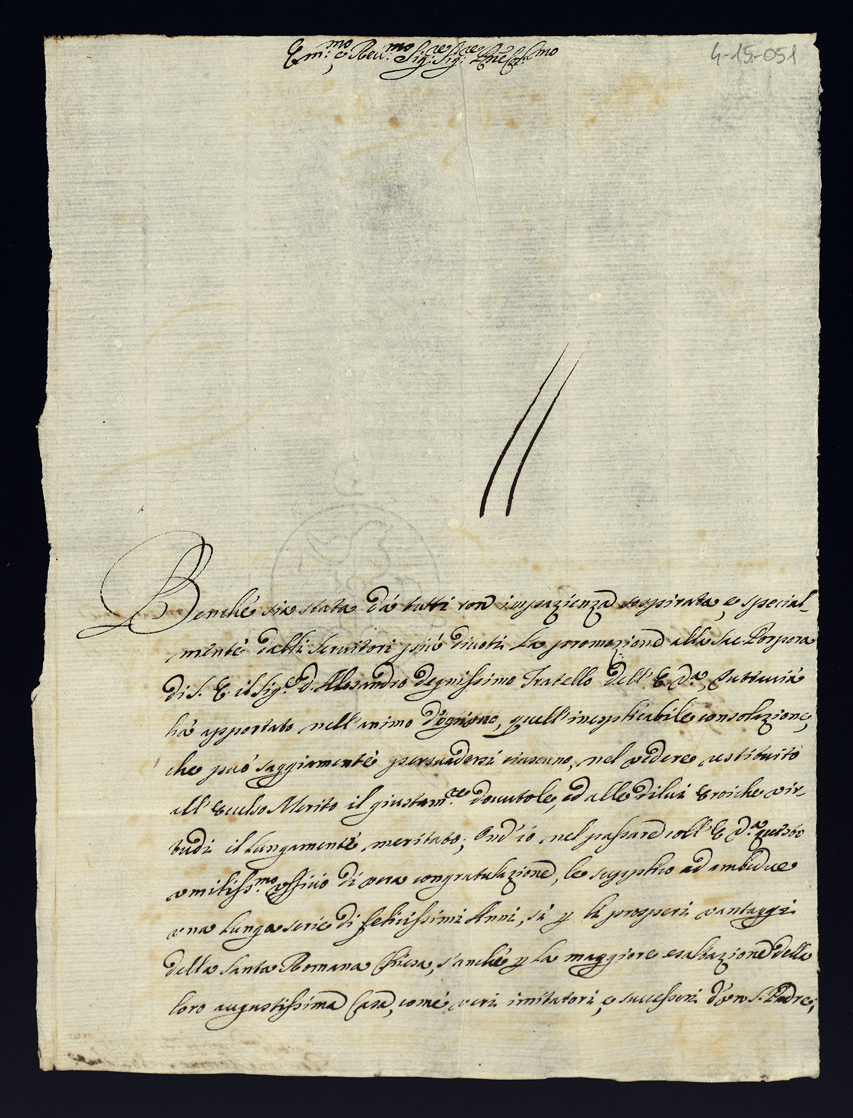 Em:mo e Reu:mo Sig:re Sig:re Pne Col:mo
4-15-051
Benche sia stata dà tutti con impazienza sospirata, e special-
mente dalli Seruitori più diuoti la promozione alla Sac Porpora
di S. E. il Sig:r D. Alesandro degnissimo Fratello dell' E. V.a, tuttauia
hà apportato nell' animo d'ogniuno, quell' inesplicabile consolazione,
che può saggiamente persuadersi ciascuno, nel vedere restituito
all' Eccelso Merito il giustam.te douutole, ed alle di lui Eroiche vir-
tudi il lungamente meritato; Ond' io nel passare coll' E. V.a questo
vmiliss:mo vfficio di vera congratulazione, le supplico ad ambidue
vna lunga serie di felicissimi Anni, sì p li prosperi vantaggi
della Santa Romana Chiesa, s'anche p la maggiore esaltazione della
loro augustissima Casa, come veri imitatori, e successori d'vn S. Padre,